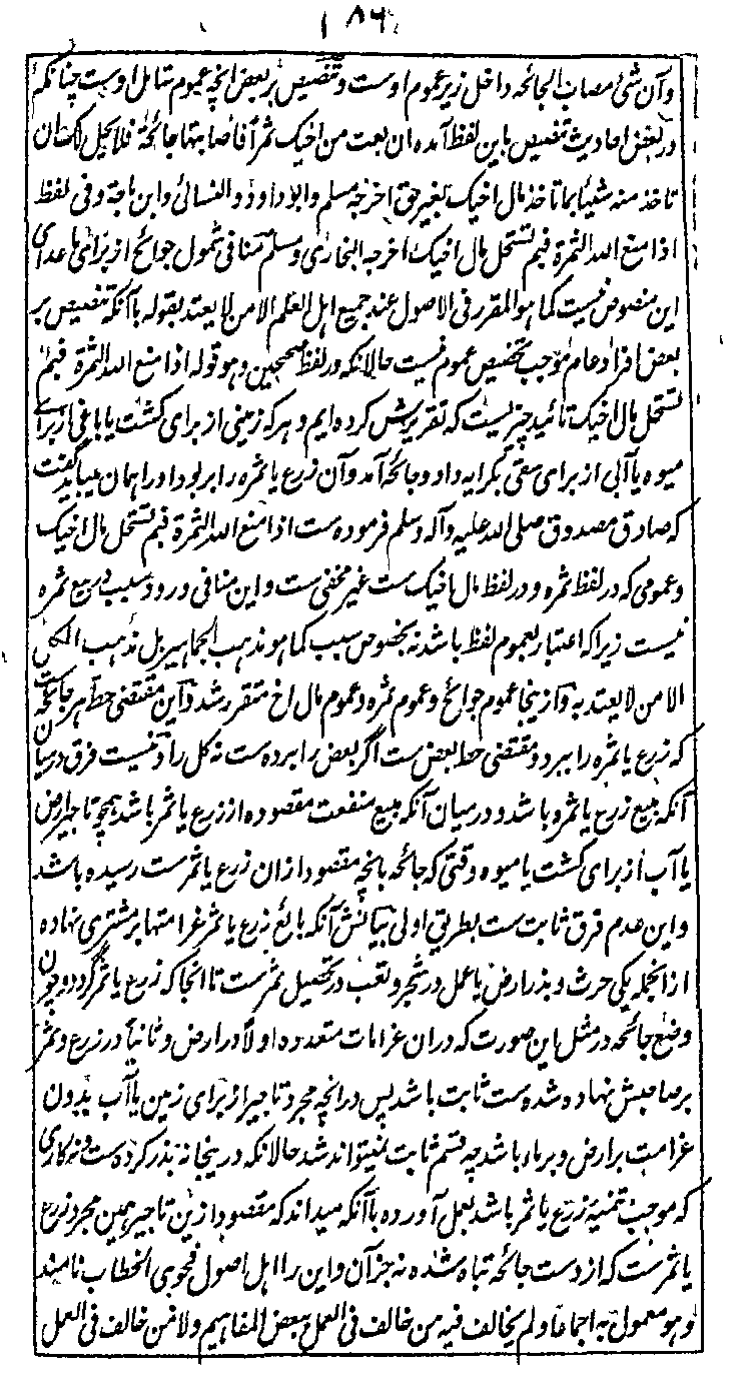 ۱۸۶
وآن شئ مصاب الجائحه داخل زیر عموم اوست وتنصیص بر بعض انچه عموم شامل اوست چنانکه
در بعض احادیث تنصیص باین لفظ آمده ان بعت من اخیک ثمراً فاصابتها جائحة فلا یحل لک ان
تاخذ منه شیئا بما تاخذ مال اخیک بغیر حق اخرجه مسلم وابو داود والنسائی وابن ماجة وفی لفظ
اذا منع الله الثمرة فبم تستحل مال اخیک اخرجه البخاری ومسلم منافی شمول جوائح از برای ماعدای
این منصوص نیست کما هو المقرر فی الاصول عند جمیع اهل العلم الا من لا یعتد بقوله باآنکه تنصیص بر
بعض افراد عام موجب تخصیص عموم نیست حالانکه در لفظ صحیحین وهو قوله اذا منع الله الثمرة فبم
تستحل مال اخیک تائید چیزیست که تقریرش کرده ایم وهر که زمینی از برای کشت یا باغی از برای
میوه یا آبی از برای سقی بکرایه داد وجائحه آمد وآن زرع یا ثمره را بر بود او را همان میباید گفت
که صادق مصدوق صلی الله علیه وآله وسلم فرموده ست اذا منع الله الثمرة فبم تستحل مال اخیک
وعمومی که در لفظ ثمره ودر لفظ مال اخیک ست غیر مخفی ست واین منافی ورود بسبب در بیع ثمره
نیست زیرا که اعتبار بعموم لفظ باشد نه بخصوص سبب کما هو مذهب الجماهیر بل مذهب الکل
الا من لا یعتد به وازینجا عموم جوائح وعموم ثمره وعموم مال اخ متقرر شد واین مقتضی حط هر جائحه ست
که زرع یا ثمره را ببرد ومقتضی حط بعض ست اگر بعض را برده ست نه کل را ونیست فرق در میان
آنکه مبیع زرع یا ثمره باشد ودر میان آنکه مبیع منفعت مقصوده از زرع یا ثمر باشد همچو تاجیر ارض
یا آب از برای کشت یا میوه وقتی که جائحه بانچه مقصود ازان زرع یا ثمرست رسیده باشد
واین عدم فرق ثابت ست بطریق اولی بیانش آنکه بائع زرع یا ثمر غرامتها بر مشتری نهاده
ازانجمله یکی حرث وبذر ارض یا عمل در شجر وتعب در تحصیل ثمرست تا انجا که زرع یا ثمر گردد وچون
وضع جائحه در مثل این صورت که دران غرامات متعدده اولاً در ارض وثانیاً در زرع وثمر
بر صاحبش نهاده شده ست ثابت باشد پس در انچه مجرد تاجیر از برای زمین یا آب بدون
غرامت بر ارض وبر ماء باشد چه قسم ثابت نمیتواند شد حالانکه درینجا نه بذر کرده ست ونه کاری
که موجب تنمیهٔ زرع یا ثمر باشد بعمل آورده باآنکه میداند که مقصود ازین تاجیر همین مجرد زرع
یا ثمرست که از دست جائحه تباه شده نه جز آن واین را اهل اصول فحوی الخطاب نامند
وهو معمول به اجماعا ولم یخالف فیه من خالف فی العمل ببعض المفاهیم ولا من خالف فی العمل